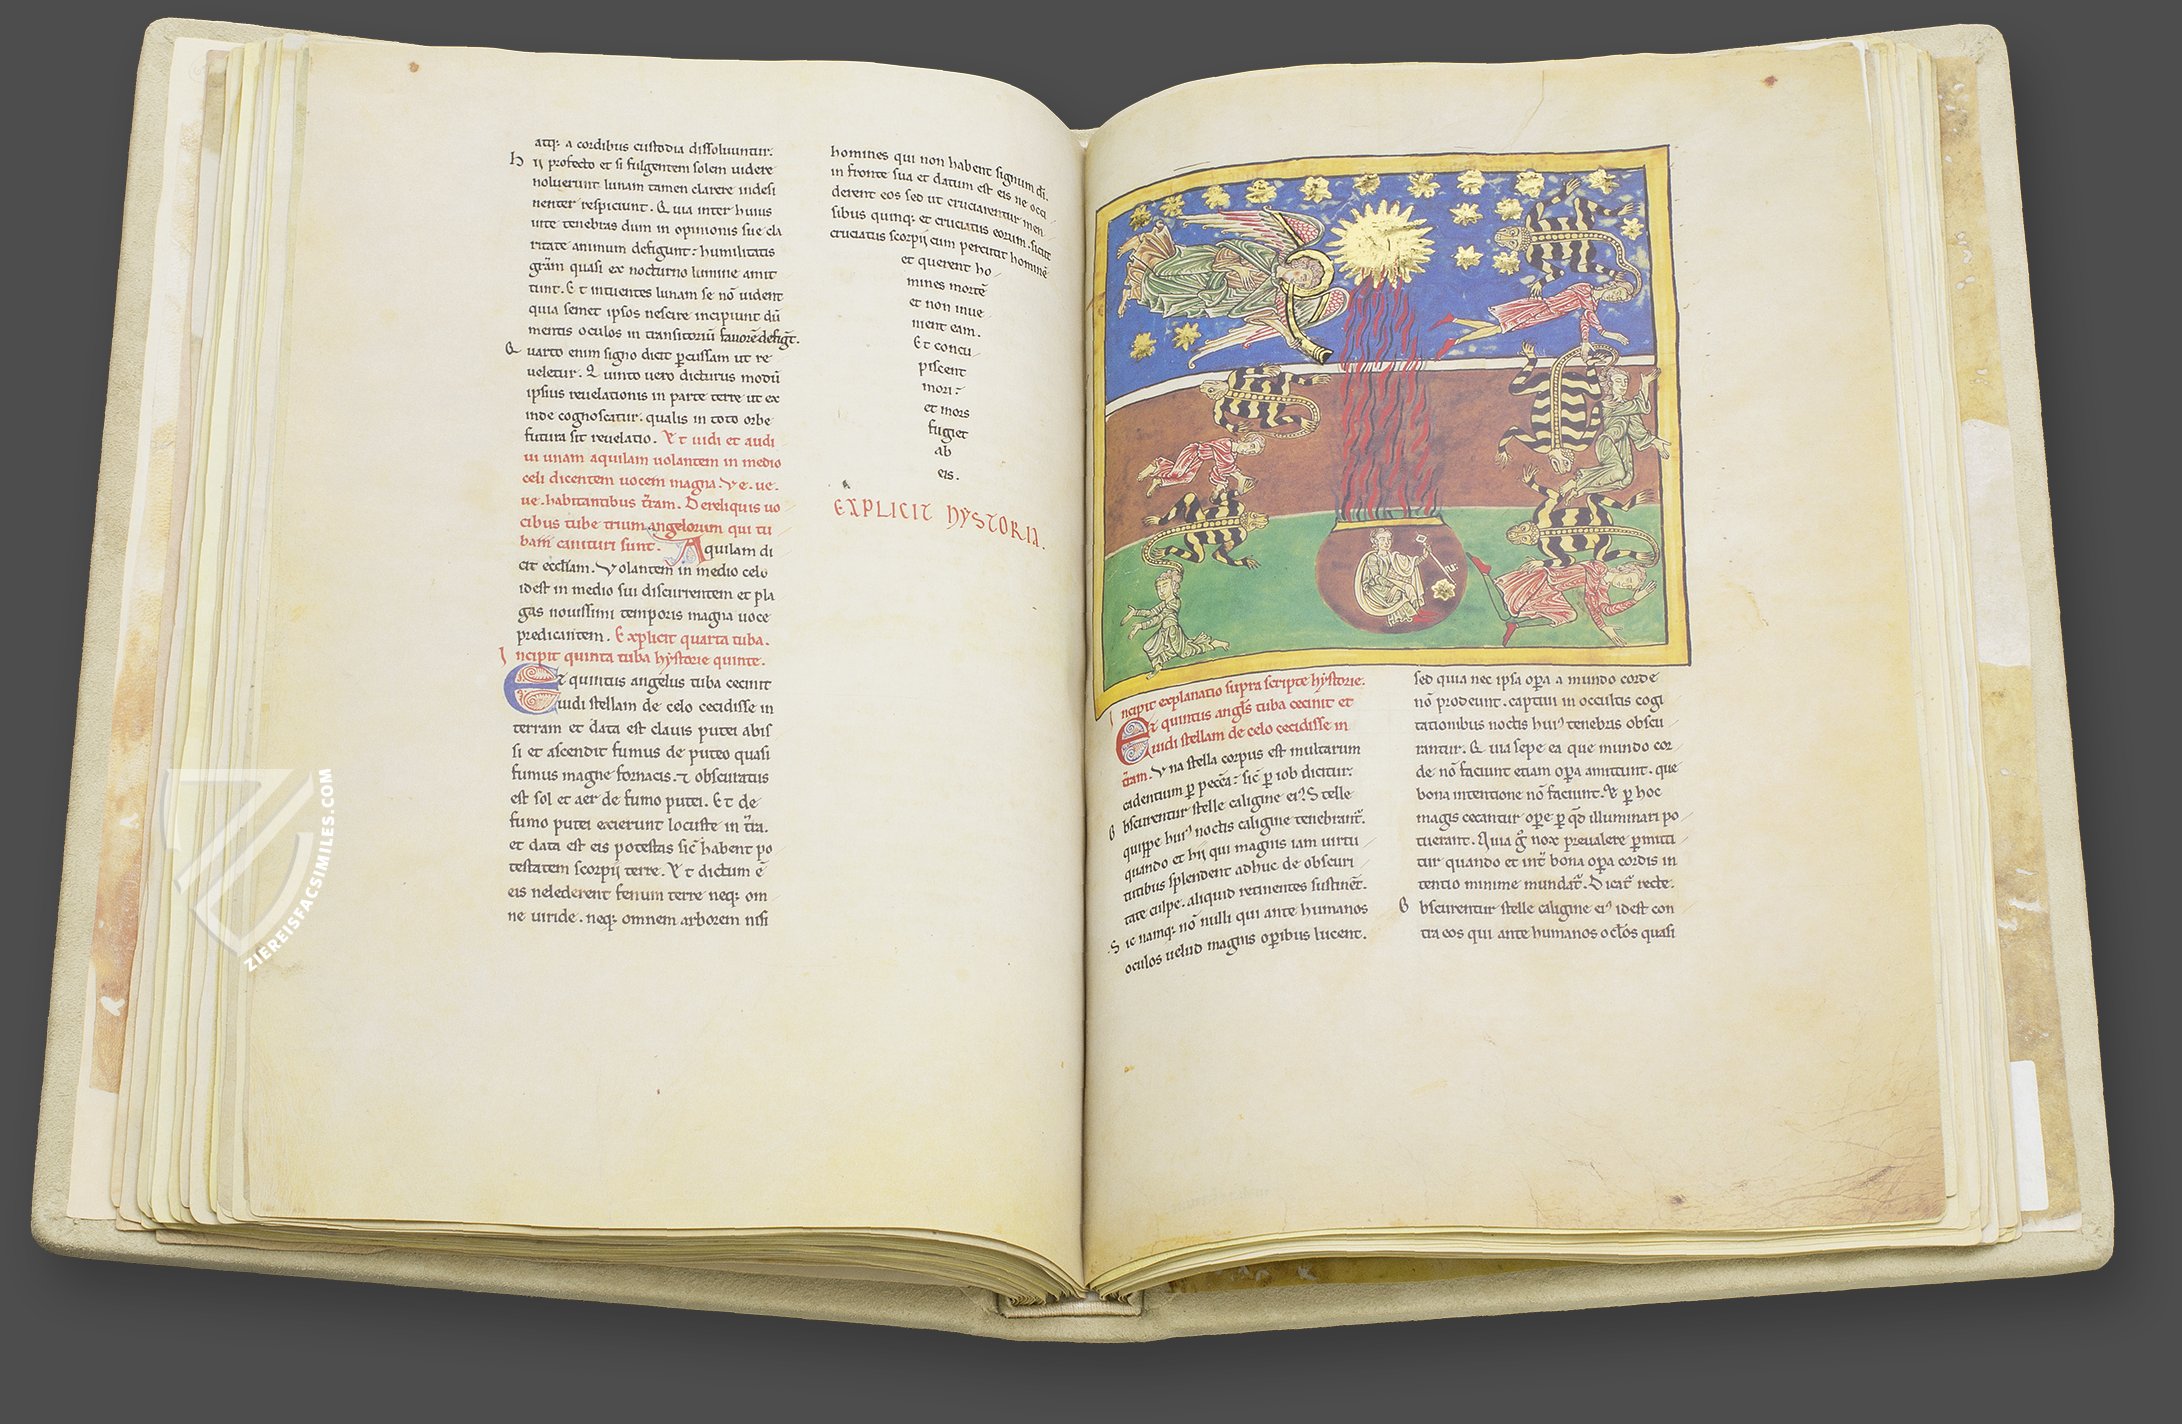 atq; a cordibus custodia dissoluuntur.
hij profecto et si fulgentem solem uidere
noluerunt lunam tamen clarere indesi
nenter respiciunt. Quia inter huius
uite tenebras dum in opinionis sue cla
ritate animum defigunt: humilitatis
grãm quasi ex nocturno lumine amit
tunt. Et intuentes lunam se nõ uident
quia semet ipsos nescire incipiunt dũ
mentis oculos in transitoriũ fauorẽ defigt̃.
Quarto enim signo dicit p̱cussam ut re
ueletur. Quinto uero dicturus modũ
ipsius reuelationis in parte terre ut ex
inde cognoscatur. qualis in toto orbe
futura sit reuelatio. Et uidi et audi
ui unam aquilam uolantem in medio
celi dicentem uocem magna. Ve. ue.
ue. habitantibus t̃ram. Dereliquis uo
cibus tube trium angelorum qui tu
bam canituri sunt. Aquilam di
cit eccl̃am. Volantem in medio celo
idest in medio sui discurrentem et pla
gas nouissimi temporis magna uoce
predicantem. Explicit quarta tuba.
Incipit quinta tuba hẏstorie quinte.
Et quintus angelus tuba cecinit
Euidi stellam de celo cecidisse in
terram et data est clauis putei abis
si et ascendit fumus de puteo quasi
fumus magne fornacis. ⁊ obscuratus
est sol et aer de fumo putei. Et de
fumo putei exierunt locuste in t̃ra.
et data est eis potestas sic̃ habent po
testatem scorpij terre. Et dictum ẽ
eis nelederent fenum terre neq; om
ne uiride. neq; omnem arborem nisi
homines qui non habent signum dĩ.
in fronte sua et datum est eis ne occi
derent eos sed ut cruciarentur men
sibus quinq; et cruciatus eorum. sicut
cruciatus scorpij cum percutit hominẽ
et querent ho
mines mortẽ
et non inue
nient eam.
Et concu
piscent
mori:
et mors
fugiet
ab
eis.
EXPLICIT HYSTORIA.
Incipit explanatio supra scripte hẏstorie.
Et quintus angl̃s tuba cecinit et
Euidi stellam de celo cecidisse in
t̃ram. Vna stella corpus est multarum
cadentium p̱ pecc̃a: sic̃ p̱ iob dicitur.
Obscurentur stelle caligine ei⁹. Stelle
quippe hui⁹ noctis caligine tenebrant̃.
quando et hij qui magnis iam uirtu
tutibus splendent adhuc de obscuri
tate culpe. aliquid retinentes sustinẽt.
Sic namq; nõ nulli qui ante humanos
oculos uelud magnis op̱ibus lucent.
sed quia nec ipsa op̱a a mundo corde
nõ prodeunt. captiui in occultis cogi
tationibus noctis hui⁹ tenebris obscu
rantur. Quia sepe ea que mundo cor
de nõ faciunt etiam op̱a amittunt. que
bona intentione nõ faciunt. Et p̱ hoc
magis cecantur ope p̱ qd̃ illuminari po
tuerant. Quia g̃ nox preualere p̱miti
tur quando et int̃ bona op̱a cordis in
tentio minime mundat̃. Dicat̃ recte.
Obscurentur stelle caligine ei⁹ idest con
tra eos qui ante humanos ocl̃os quasi
ZIEREISFACSIMILES.COM